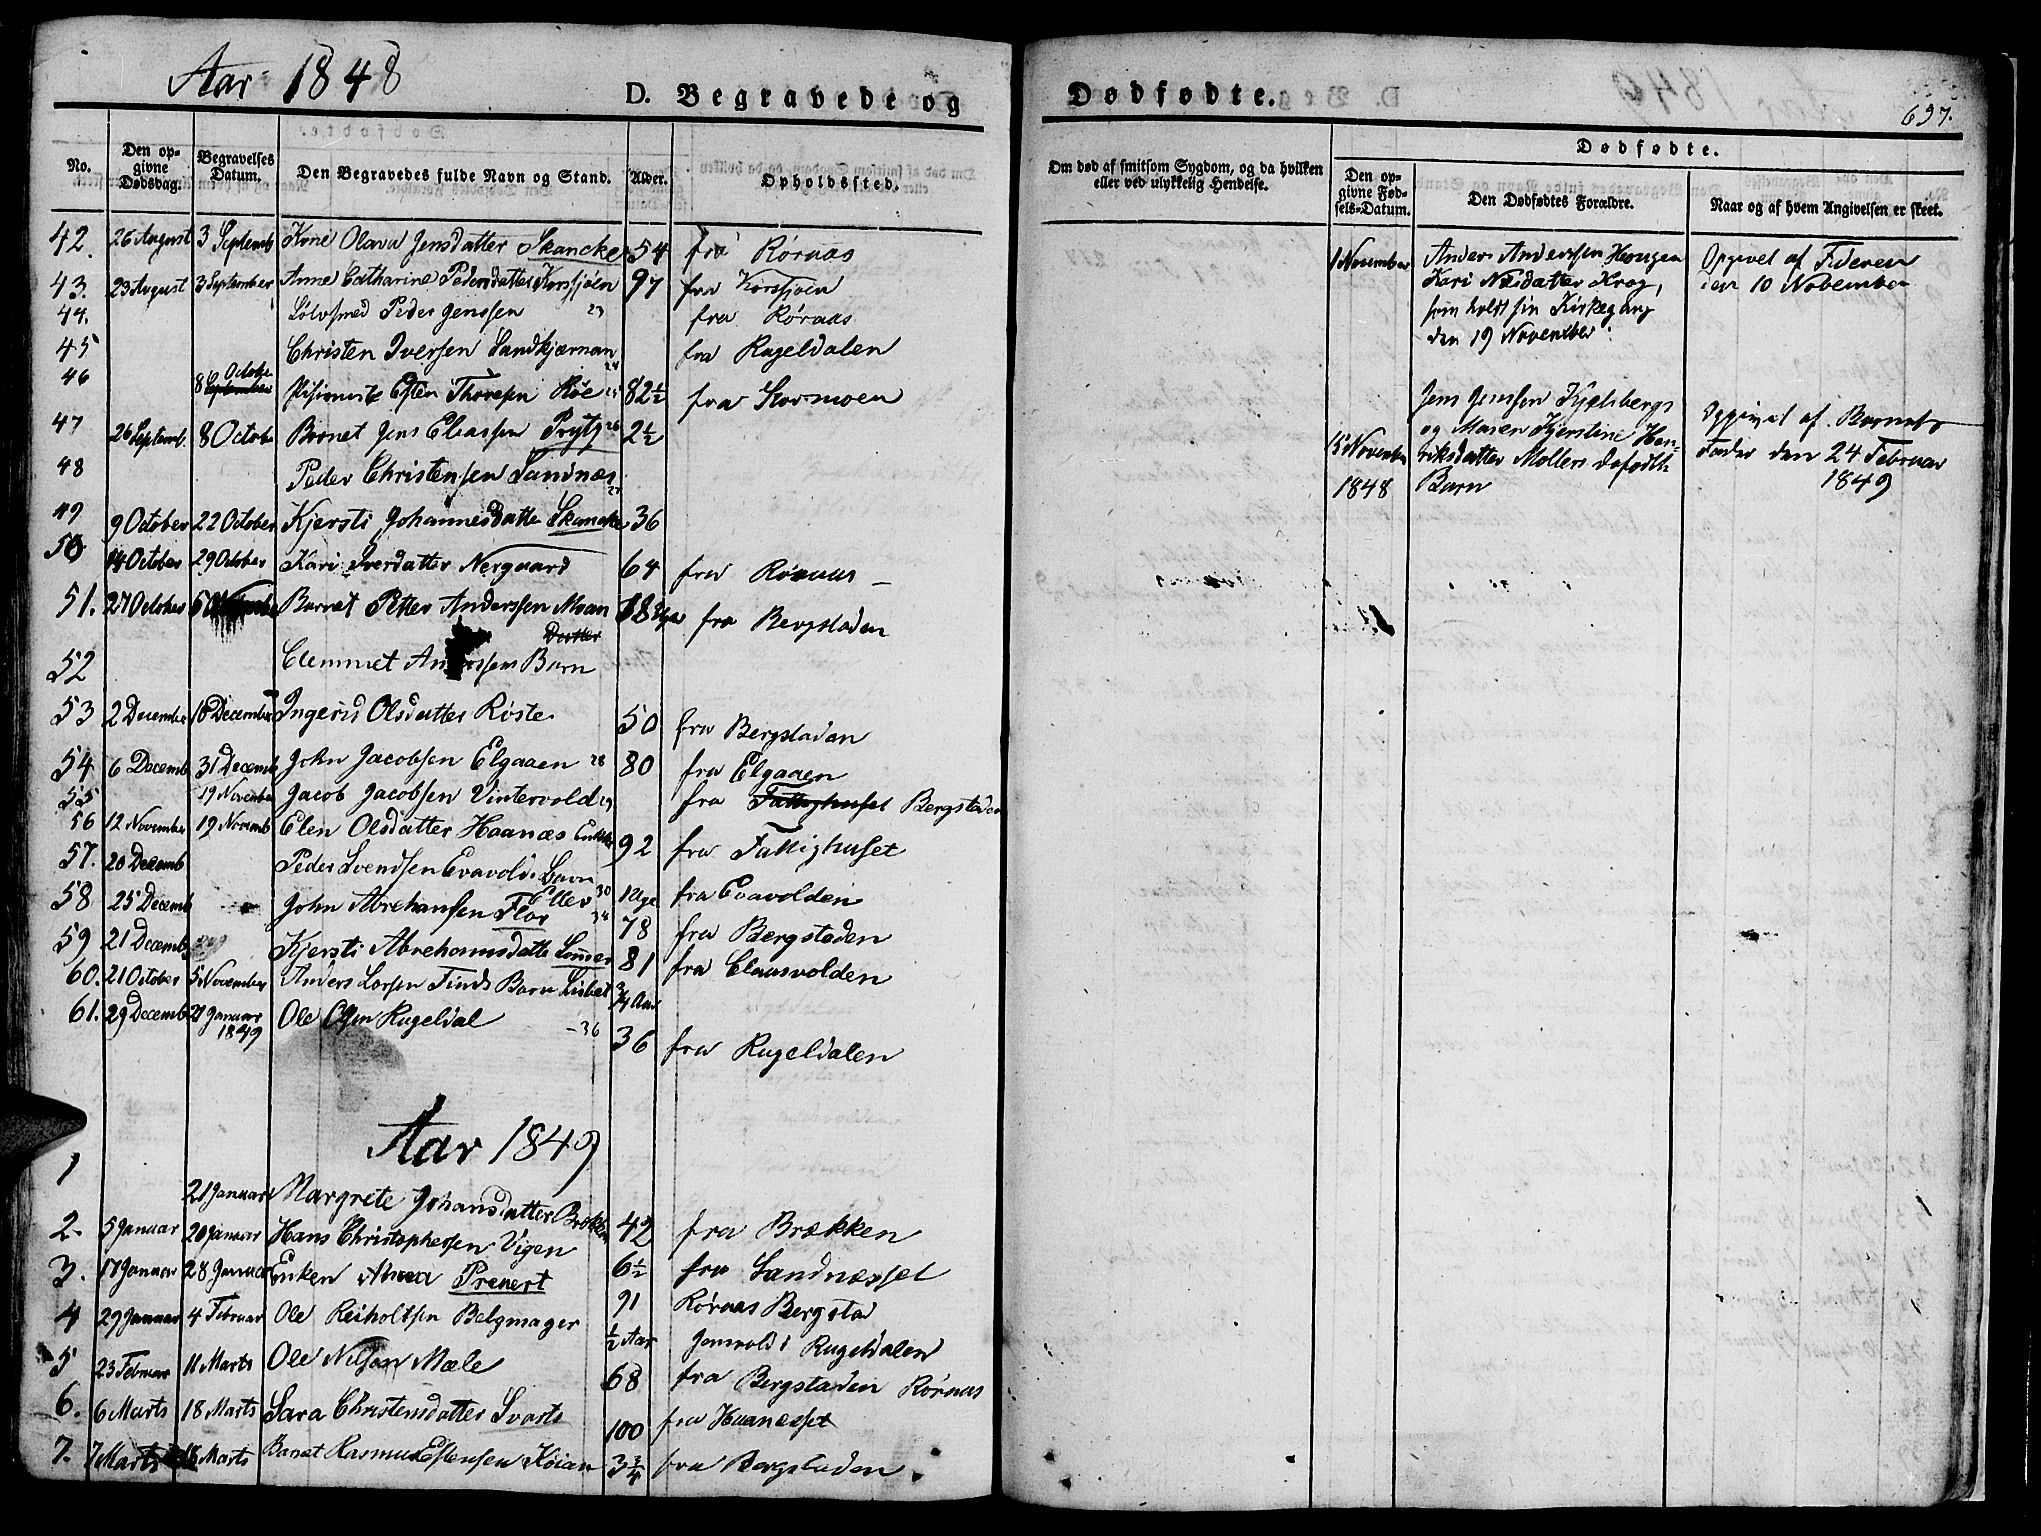 Aar 1848
D. Begravede og
No.
Den op-
givne
Dødsdag.
Begravelses
Datum.
Den Begravedes fulde Navn og Stand.
Alder.
Opholdssted.
42. 26 August 3 Septemb Kone Olava Jensdatter Skancke 54 fra Røraas
43. 23 August 3 September Anne Catharine Pedersdatter Korssjøen 97 fra Korssjøen
44. Sølvsmed Peder Jenssen 23 fra Røraas
45 Christen Iversen Sandkjærnan 24 fra Rugeldalen
46 8 September Octobe Esten Thoresen Høe 25 82½ fra Stormoen
47 26 Septemb. 8 Octobe Barnet Jens Eliassen Prytz 26 2½
48 Peder Christensen Sandnæs 27
49 9 October 22 October Kjersti Johannesdatte Skancke 36
50 14 October 29 October Kari Iverdatter Nergaard 64 fra Røraas
51. 27 Octobe 6 Barnet Petter Anderssen Moan fra Bergstaden
Datter
52 Clemmet Anderssens Barn
53 2 December December Ingerid Olsdatter Røste 50 fra Bergstaden
54 6 Decemb 31 Decemb John Jacobsen Elgaaen 28 80 fra Elgaaen
55 19 Novembe Jacob Jacobsen Vintervold 29 fra Fattighuset Bergstaden
56 12 November 19 Novemb Elen Olsdatter Haanæs Enke 92 fra Fattighuset
57. 20 Decemb Peder Svendsen Evavolds Barn 30 1 Uge fra Evavolden
58 25 Decemb John Abrehamsen Flor Eller 78 fra Bergstaden
59 21 Decemb Kjersti Abrehamsdatte Sommer 81 fra Clausvolden
60. 21 October 5 November Anders Larsen Finds Barn Lisbet ¾ Aar
61. 29 Decemb 21 Januar Ole Olsen Rugeldal 36 36 fra Rugeldalen
1849
Aar 1849
1 21 Januar Margrete Johansdatter Brekken 42 fra Brækken
2. 5 Januar 20 Januar Hans Christophersen Vigen 6½ fra Sandnæsset
3. 17 Januar 28 Januar Enken Anna Prenert 91 Røraas Bergsta
4 29 Januar 4 Februar Ole Reiholtsen Belgmager ½ Aar Rugeldalen
5 23 Februar 11 Marts Ole Nilsen Mæle 68 fra Bergstaden Røraas
6. 6 Marts 18 Marts Sara Christensdatter Svarts 100 fra Haanæsset
7. 7 Marts 18 Marts Barnet Rasmus Estensen Køian 3¾ fra Bergstaden.
Dødfødte.
637.
Om død af smitsom Sygdom, og da hvilken
eller ved ulykkelig Hendelse.
Dødfødte.
Den op-
givne Fød-
sels-Datum.
Den Dødfødtes Forældre.
Naar og af hvem Angivelsen er skeet.
1 November Anders Anderssen Hougen Opgivet af Faderen
Kari Nilsdatter Krog, den 10 November
som holdt sin Kirkegang
den 19 November.
Jens Jenssen Kjelsbergs
og Maren Kjerstine Hen- Opgivet af Barnets
15 Novembe riksdatter Møllers døfødte Fader den 24 Februar
1848 Barn 1849